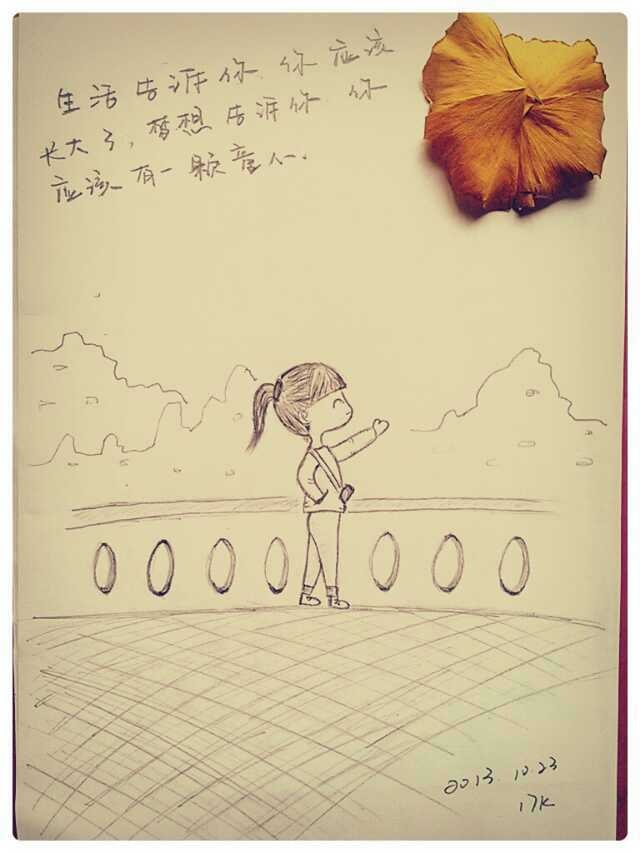 生活告诉你,你应该
长大了,梦想告诉你,你
应该有一颗童心.
2013.10.23
17K